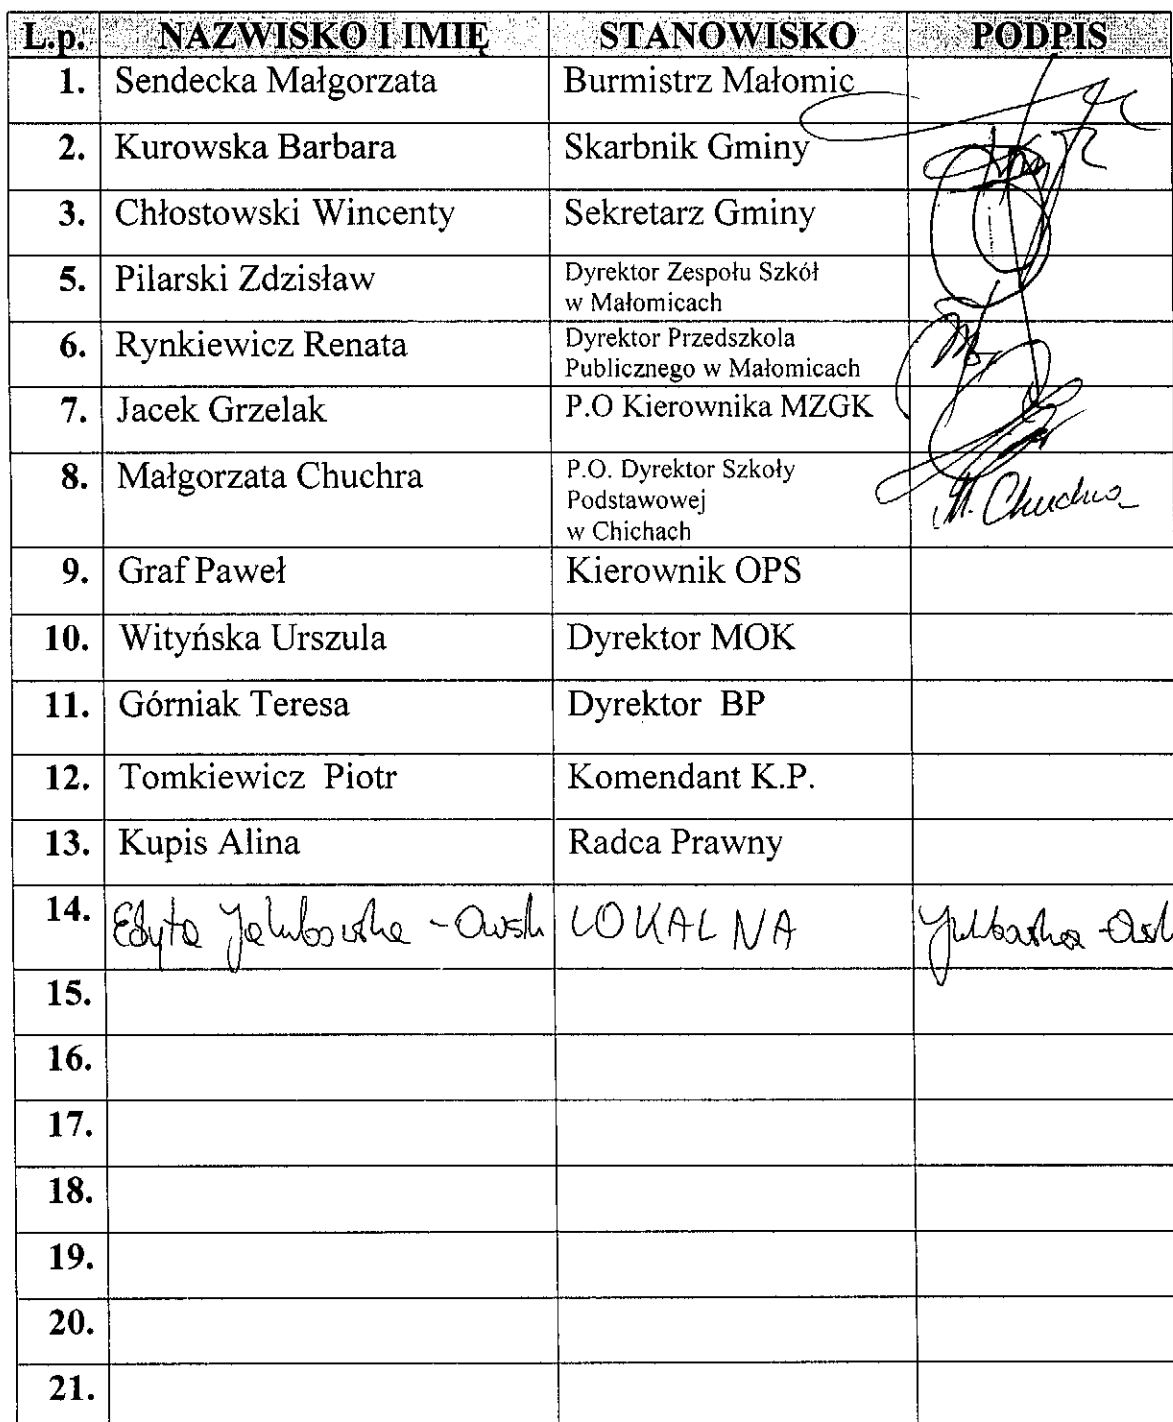 L.p. NAZWISKO I IMIĘ STANOWISKO PODPIS
1. Sendecka Małgorzata Burmistrz Małomic
2. Kurowska Barbara Skarbnik Gminy
3. Chłostowski Wincenty Sekretarz Gminy
5. Pilarski Zdzisław Dyrektor Zespołu Szkół
w Małomicach
6. Rynkiewicz Renata Dyrektor Przedszkola
Publicznego w Małomicach
7. Jacek Grzelak P.O Kierownika MZGK
8. Małgorzata Chuchra P.O. Dyrektor Szkoły
Podstawowej
w Chichach
M. Chuchra
9. Graf Paweł Kierownik OPS
10. Wityńska Urszula Dyrektor MOK
11. Górniak Teresa Dyrektor BP
12. Tomkiewicz Piotr Komendant K.P.
13. Kupis Alina Radca Prawny
14. Edyta Jakubowska - LOKALNA
15.
16.
17.
18.
19.
20.
21.